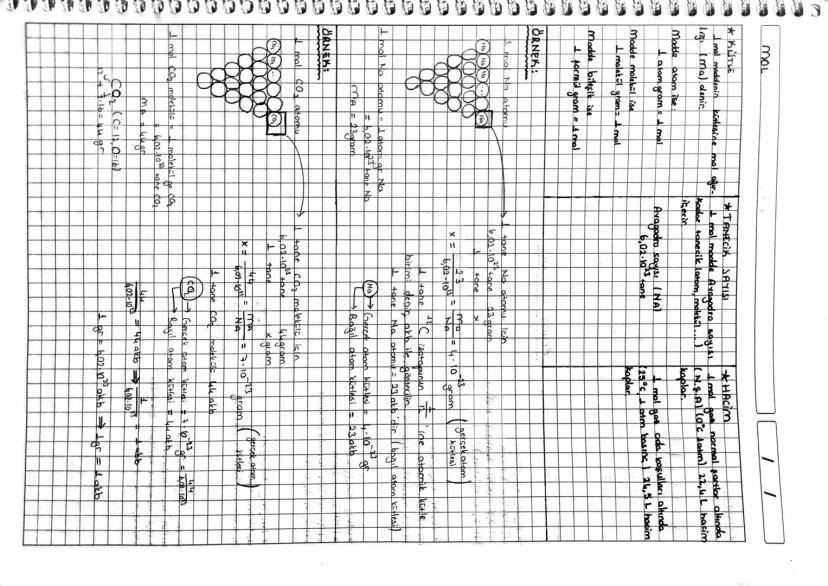 MOL
/ /
* KÜTLE
1 mol maddenin kütlesine mol ağır-
lığı (MA) denir.
Madde atom ise;
1 atom gram = 1 mol
Madde molekül ise
1 molekül gram = 1 mol
Madde bileşik ise
1 formül gram = 1 mol
* TANECİK SAYISI
1 mol madde Avagadro sayısı
kadar tanecik (atom, molekül...)
içerir.
Avagadro sayısı (NA)
6,02.10²³ tane
* HACİM
1 mol gaz normal şartlar altında
(N.Ş.A) (0°C 1atm) 22,4 L hacim
kaplar.
1 mol gaz oda koşulları altında
(25°C, 1 atm basınç) 24,5 L hacim
kaplar.
ÖRNEK:
1 mol Na atomu
Na Na Na ... Na
1 mol Na atomu = 1 atom gr Na
= 6,02.10²³ tane Na
MA = 23gram
1 tane Na atomu için
6,02.10²³ tane 23gram
1 tane x
x = 23 / 6,02.10²³ = MA / NA = 4.10⁻²³ gram (gerçek atom kütlesi)
1 tane ¹²C izotopunun 1/12 ine atomik kütle
birimi denir, akb ile gösterilir.
1 tane Na atomu = 23akb'dir (bağıl atom kütlesi)
Na → Gerçek atom kütlesi = 4.10⁻²³ gr
→ Bağıl atom kütlesi = 23akb
ÖRNEK:
1 mol CO₂ atomu
CO₂ CO₂ ... CO₂
1 mol CO₂ molekülü = 1 molekül gr CO₂
= 6,02.10²³ tane CO₂
MA = 44gr
CO₂ (C=12, O=16)
12 + 2.16 = 44 gr
1 tane CO₂ molekülü için
6,02.10²³ tane 44gram
1 tane x gram
x = 44 / 6,02.10²³ = MA / NA = 7.10⁻²³ gram (gerçek atom kütlesi)
1 tane CO₂ molekülü 44 akb
CO₂ → Gerçek atom kütlesi = 7.10⁻²³ gr = 44 / 6,02.10²³
→ Bağıl atom kütlesi = 44akb
44 / 6,02.10²³ = 44 akb ⇒ 1 / 6,02.10²³ = 1 akb
1 gr = 6,02.10²³ akb ⇒ 1gr = 1 akb